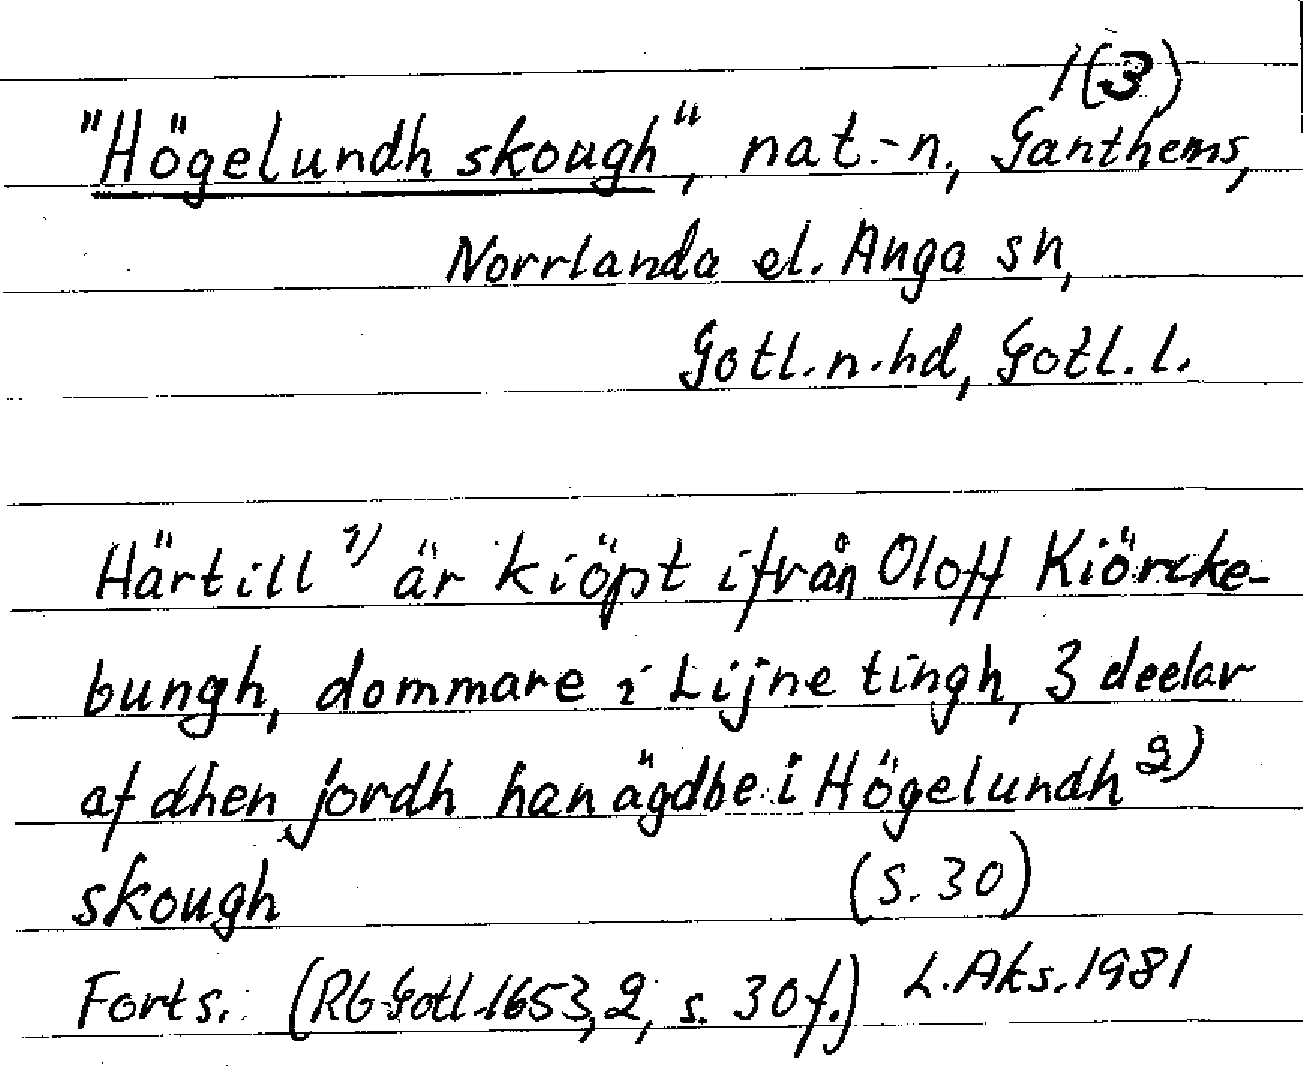 1(3)
"Högelundh skough", nat.-n., Ganthems,
Norrlanda el. Anga sn,
Gotl. n. hd, Gotl. l.
Härtill 1) är kiöpt ifrån Oloff Kiörcke-
bungh, dommare i Lijne tingh, 3 deelar
af dhen jordh han ägdhe i Högelundh 2)
skough (S. 30)
Forts. (Rb Gotl. 1653, 2, s. 30 f.) L. Aks. 1981